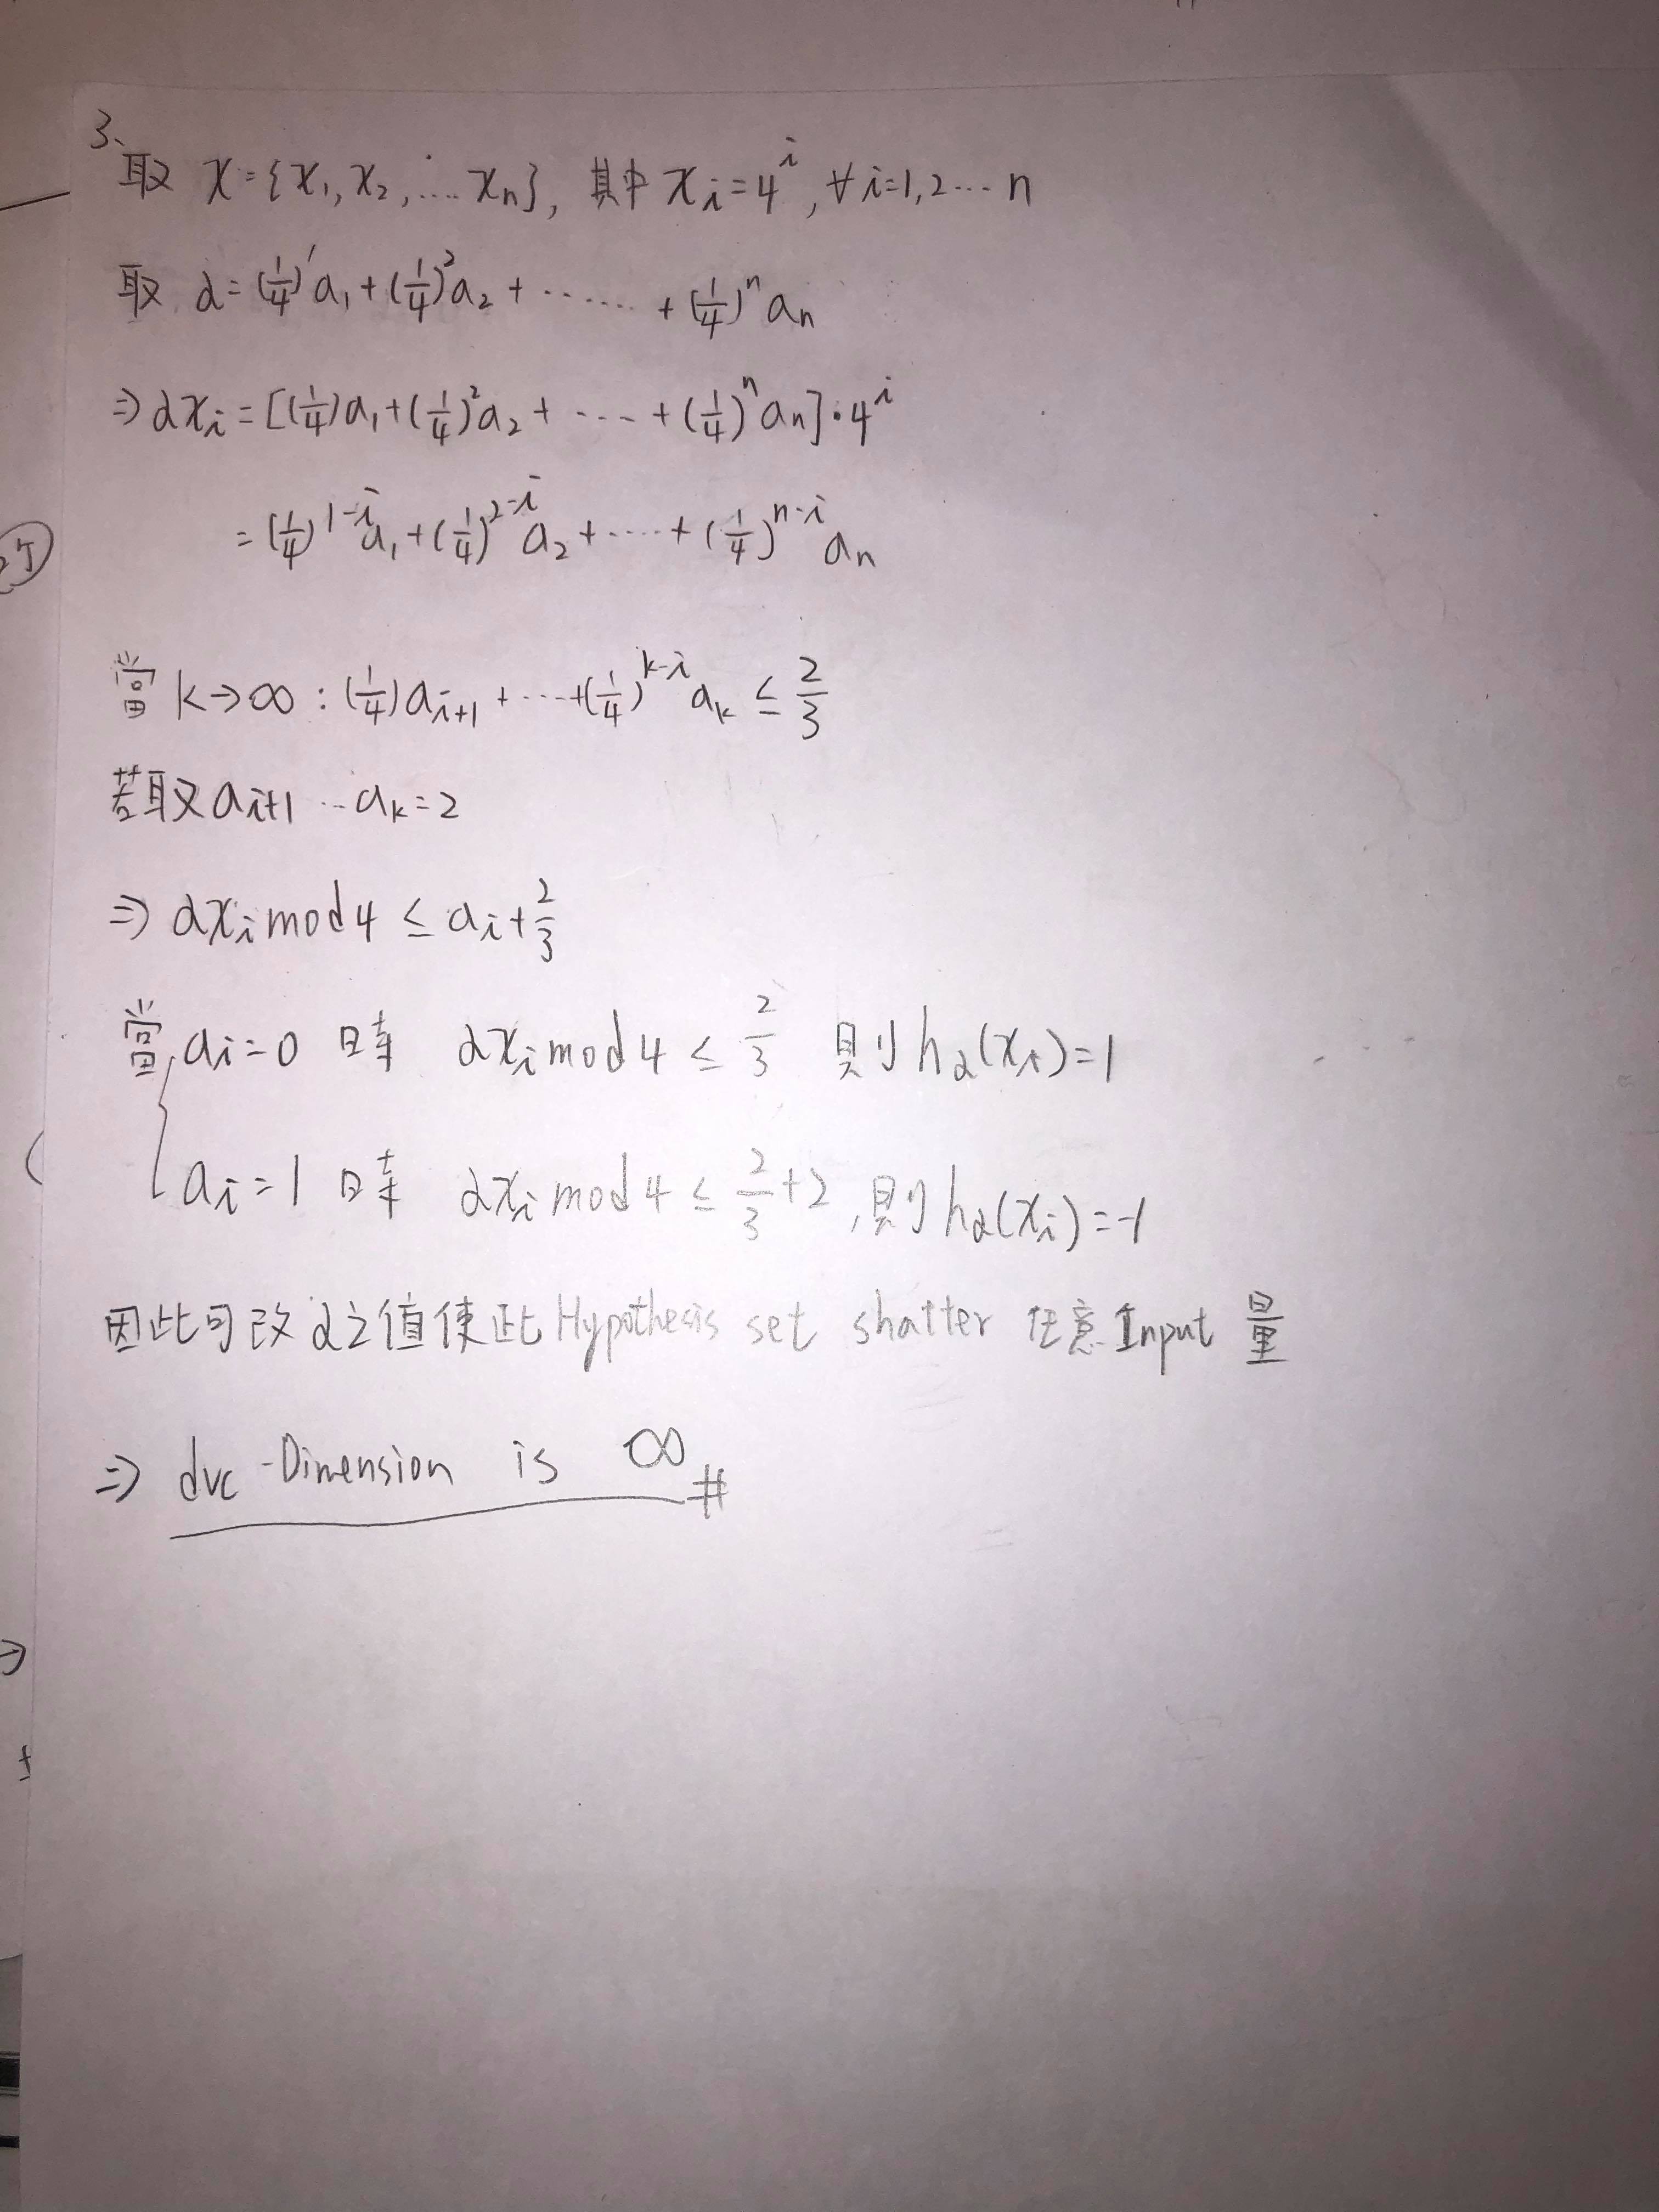 3、
取 x={x₁, x₂, .... xₙ}, 其中 xᵢ=4ⁱ, ∀i=1,2...n
取 α=(1/4)¹a₁+(1/4)²a₂+......+(1/4)ⁿaₙ
⇒ αxᵢ=[(1/4)a₁+(1/4)²a₂+....+(1/4)ⁿaₙ]·4ⁱ
=(1/4)¹⁻ⁱa₁+(1/4)²⁻ⁱa₂+.....+(1/4)ⁿ⁻ⁱaₙ
當 k→∞ : (1/4)aᵢ₊₁+...+(1/4)ᵏ⁻ⁱaₖ ≤ 2/3
若取 aᵢ₊₁...aₖ=2
⇒ αxᵢ mod 4 ≤ aᵢ+2/3
當 aᵢ=0 時 αxᵢ mod 4 ≤ 2/3 則 hα(xᵢ)=1
aᵢ=1 時 αxᵢ mod 4 ≤ 2/3+2, 則 hα(xᵢ)=-1
因此可改α之值使此 Hypothesis set shatter 任意 Input 量
⇒ dvc-Dimension is ∞ #